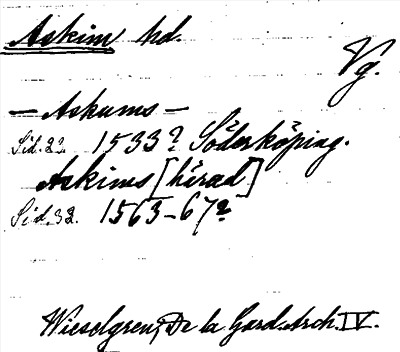 Askim hd.
Vg.
— Askums —
Sid. 22. 1533? Söderköping.
Askims [härad]
Sid. 32. 1563–67?
Wieselgren, De la Gard. Arch. IV.